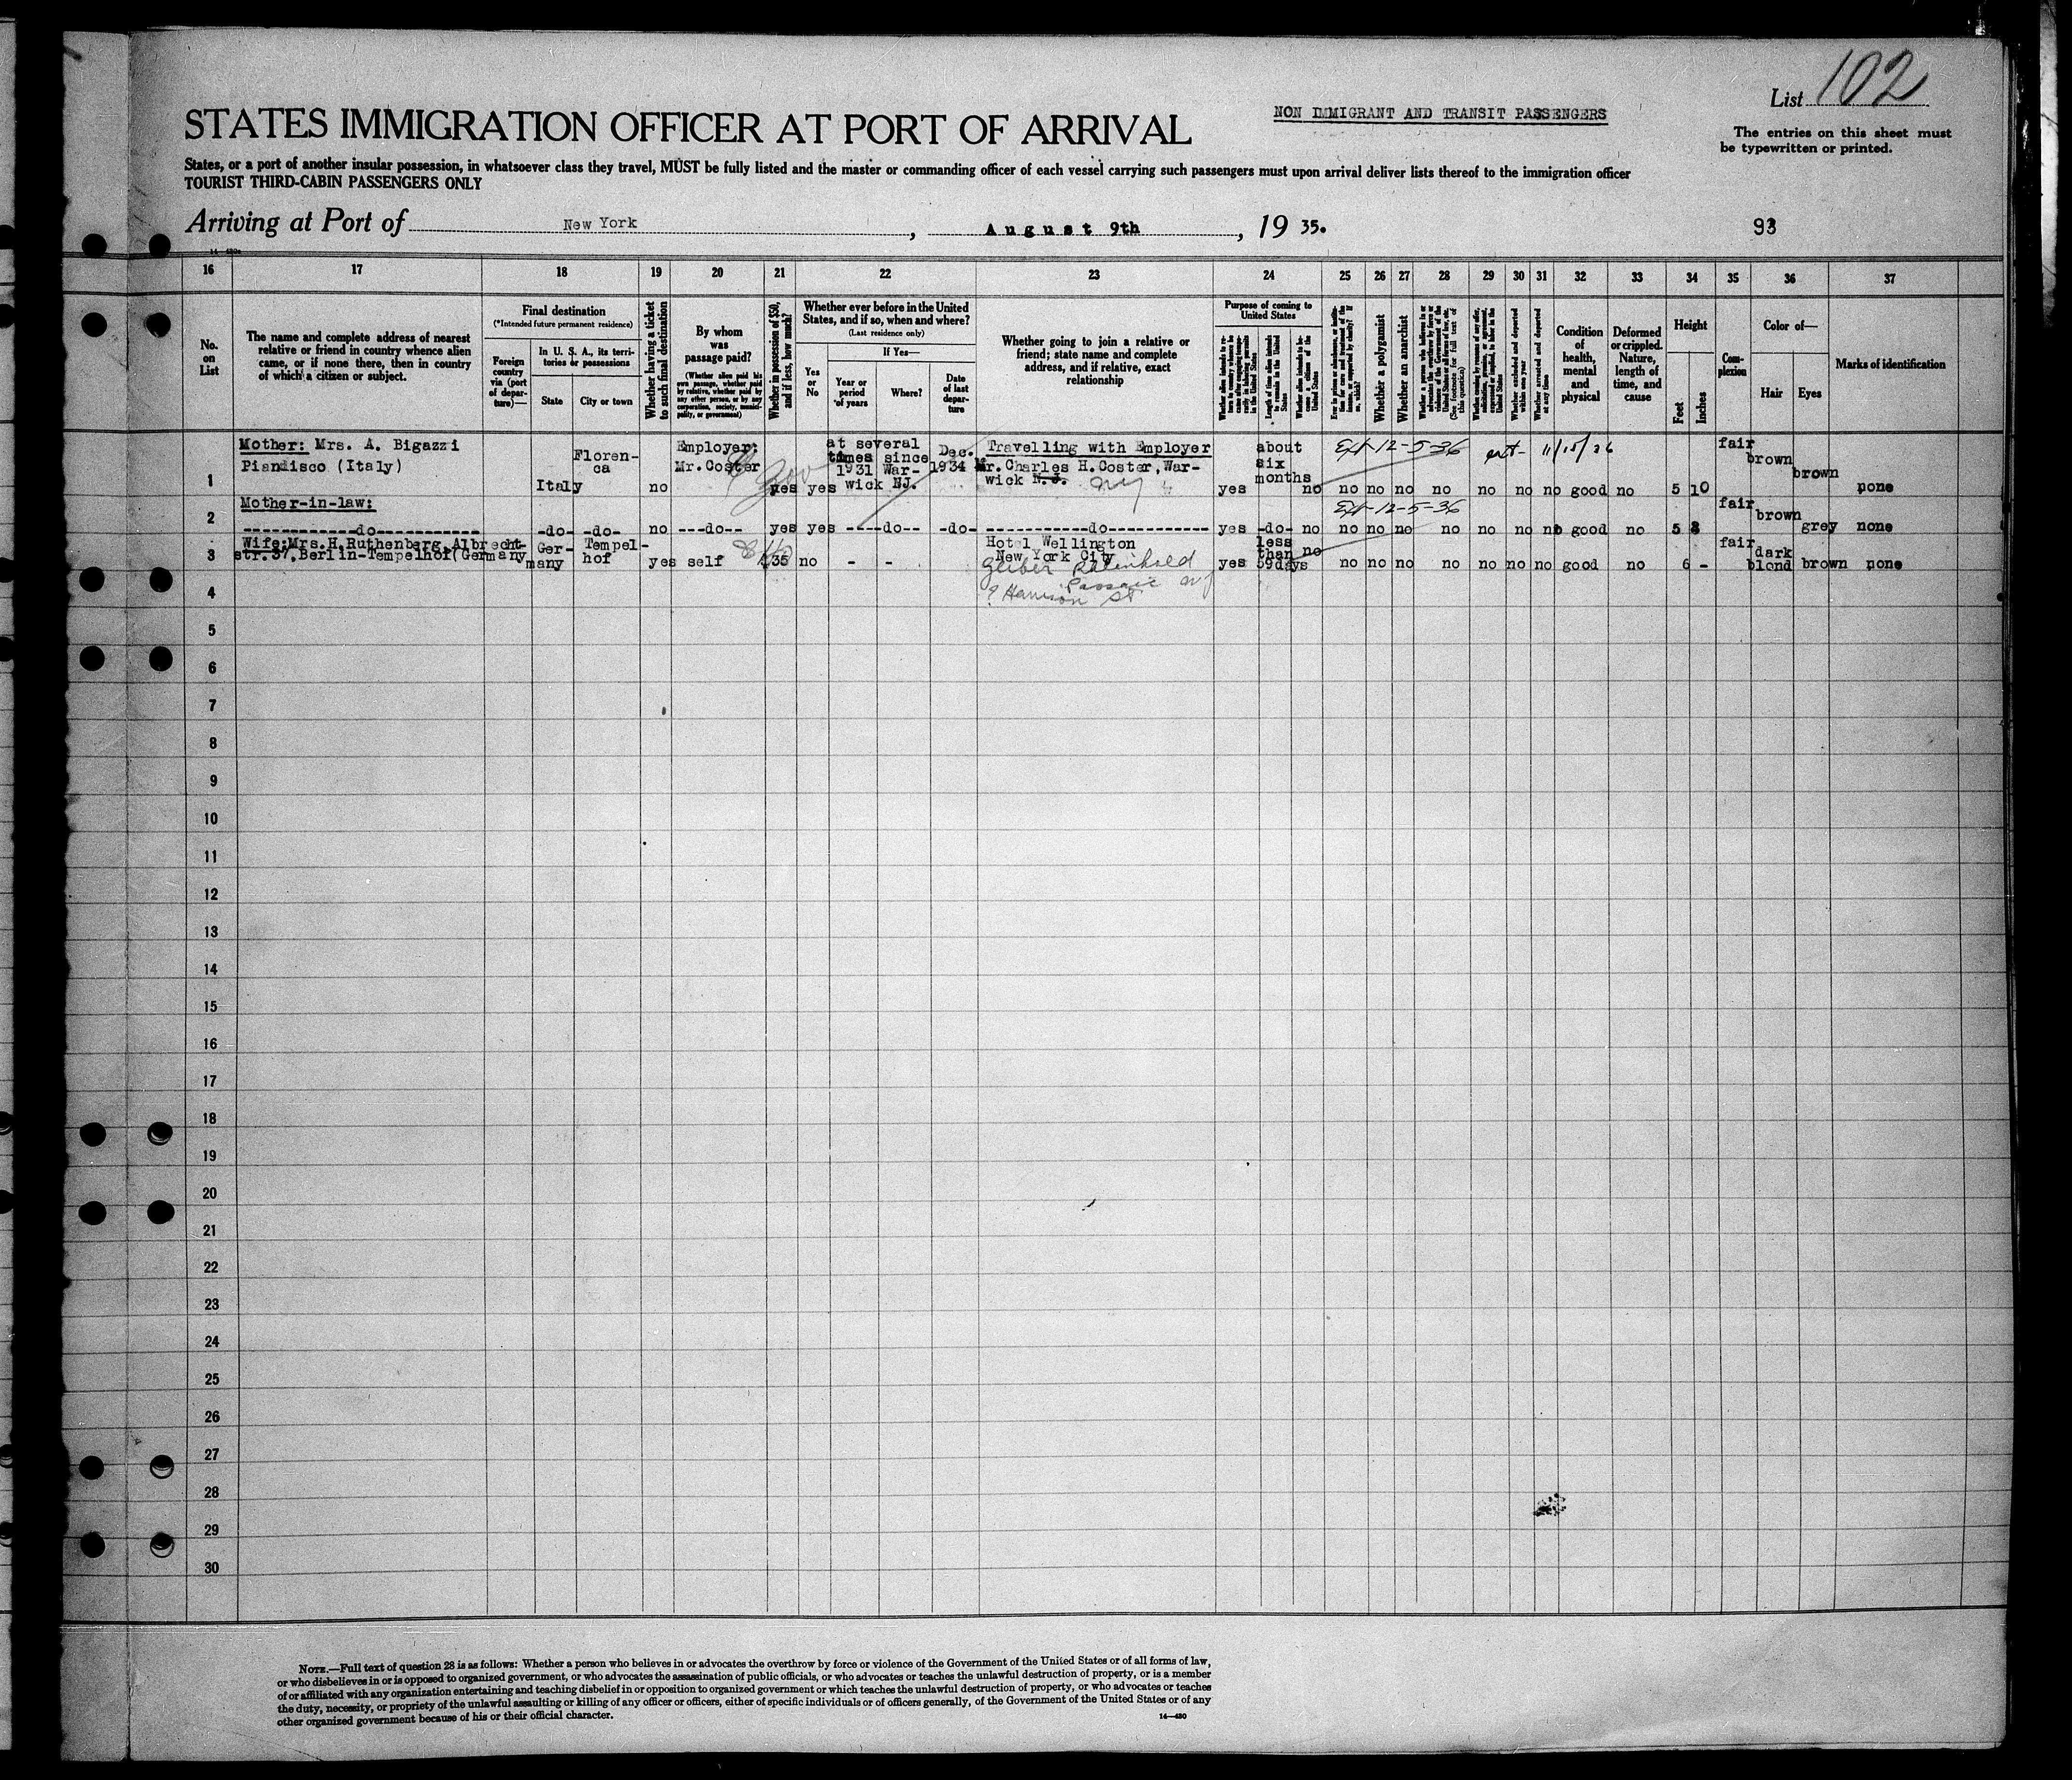 List 102
NON IMMIGRANT AND TRANSIT PASSENGERS
STATES IMMIGRATION OFFICER AT PORT OF ARRIVAL
The entries on this sheet must
be typewritten or printed.
States, or a port of another insular possession, in whatsoever class they travel, MUST be fully listed and the master or commanding officer of each vessel carrying such passengers must upon arrival deliver lists thereof to the immigration officer
TOURIST THIRD-CABIN PASSENGERS ONLY
Arriving at Port of New York, August 9th, 19 35.
93
16 17 18 19 20 21 22 23 24 25 26 27 28 29 30 31 32 33 34 35 36 37
No.
on
List
The name and complete address of nearest
relative or friend in country whence alien
came, or if none there, then in country
of which a citizen or subject.
Final destination
(*Intended future permanent residence)
Foreign
country
via (port
of depar-
ture)—
In U. S. A., its terri-
tories or possessions
State
City or town
Whether having a ticket
to such final destination
By whom
was
passage paid?
(Whether alien paid his
own passage, whether paid
by relative, whether paid by
any other person, or by any
corporation, society, munici-
pality, or government)
Whether in possession of $50,
and if less, how much?
Whether ever before in the United
States, and if so, when and where?
(Last residence only)
Yes
or
No
If Yes—
Year or
period
of years
Where?
Date
of last
depar-
ture
Whether going to join a relative or
friend; state name and complete
address, and if relative, exact
relationship
Purpose of coming to
United States
Length of time alien intends
to remain in the United
States
Whether alien intends to be-
come a citizen of the
United States
Whether a polygamist
Whether an anarchist
Whether excluded and deported
within one year
Whether arrested and deported
at any time
Condition
of
health,
mental
and
physical
Deformed
or crippled.
Nature,
length of
time, and
cause
Height
Feet
Inches
Com-
plexion
Color of—
Hair
Eyes
Marks of identification
1
Mother: Mrs. A. Bigazzi
Piandisco (Italy)
Italy
Floren-
ca
no
Employer:
Mr. Coster
yes
yes
at several
times since
1931 War-
wick NJ.
Dec.
1934
Travelling with Employer
Mr. Charles H. Coster, War-
wick N.J. NY
yes
about
six
months
no
Ext-12-5-36 ext- 11/15/36
no no no no no no no good no 5 10 fair brown brown none
2
Mother-in-law:
------------do------------
-do- -do- no ---do-- yes yes ----do-- -do- -----------do-----------
yes -do- no
Ext-12-5-36
no no no no no no no good no 5 8 fair brown grey none
3
Wife:Mrs.H.Ruthenberg,Albrecht-
str.37,Berlin-Tempelhof(Germany
Ger-
many
Tempel-
hof
yes self 35 no - -
Hotel Wellington
New York City
Passaic NJ
yes
less
than
59days
no
no no no no no no no good no 6 - fair dark
blond brown none
4
5
6
7
8
9
10
11
12
13
14
15
16
17
18
19
20
21
22
23
24
25
26
27
28
29
30
NOTE.—Full text of question 28 is as follows: Whether a person who believes in or advocates the overthrow by force or violence of the Government of the United States or of all forms of law,
or who disbelieves in or is opposed to organized government, or who advocates the assassination of public officials, or who advocates or teaches the unlawful destruction of property, or is a member
of or affiliated with any organization entertaining and teaching disbelief in or opposition to organized government or which teaches the unlawful destruction of property, or who advocates or teaches
the duty, necessity, or propriety of the unlawful assaulting or killing of any officer or officers, either of specific individuals or of officers generally, of the Government of the United States or of any
other organized government because of his or their official character.
14—430